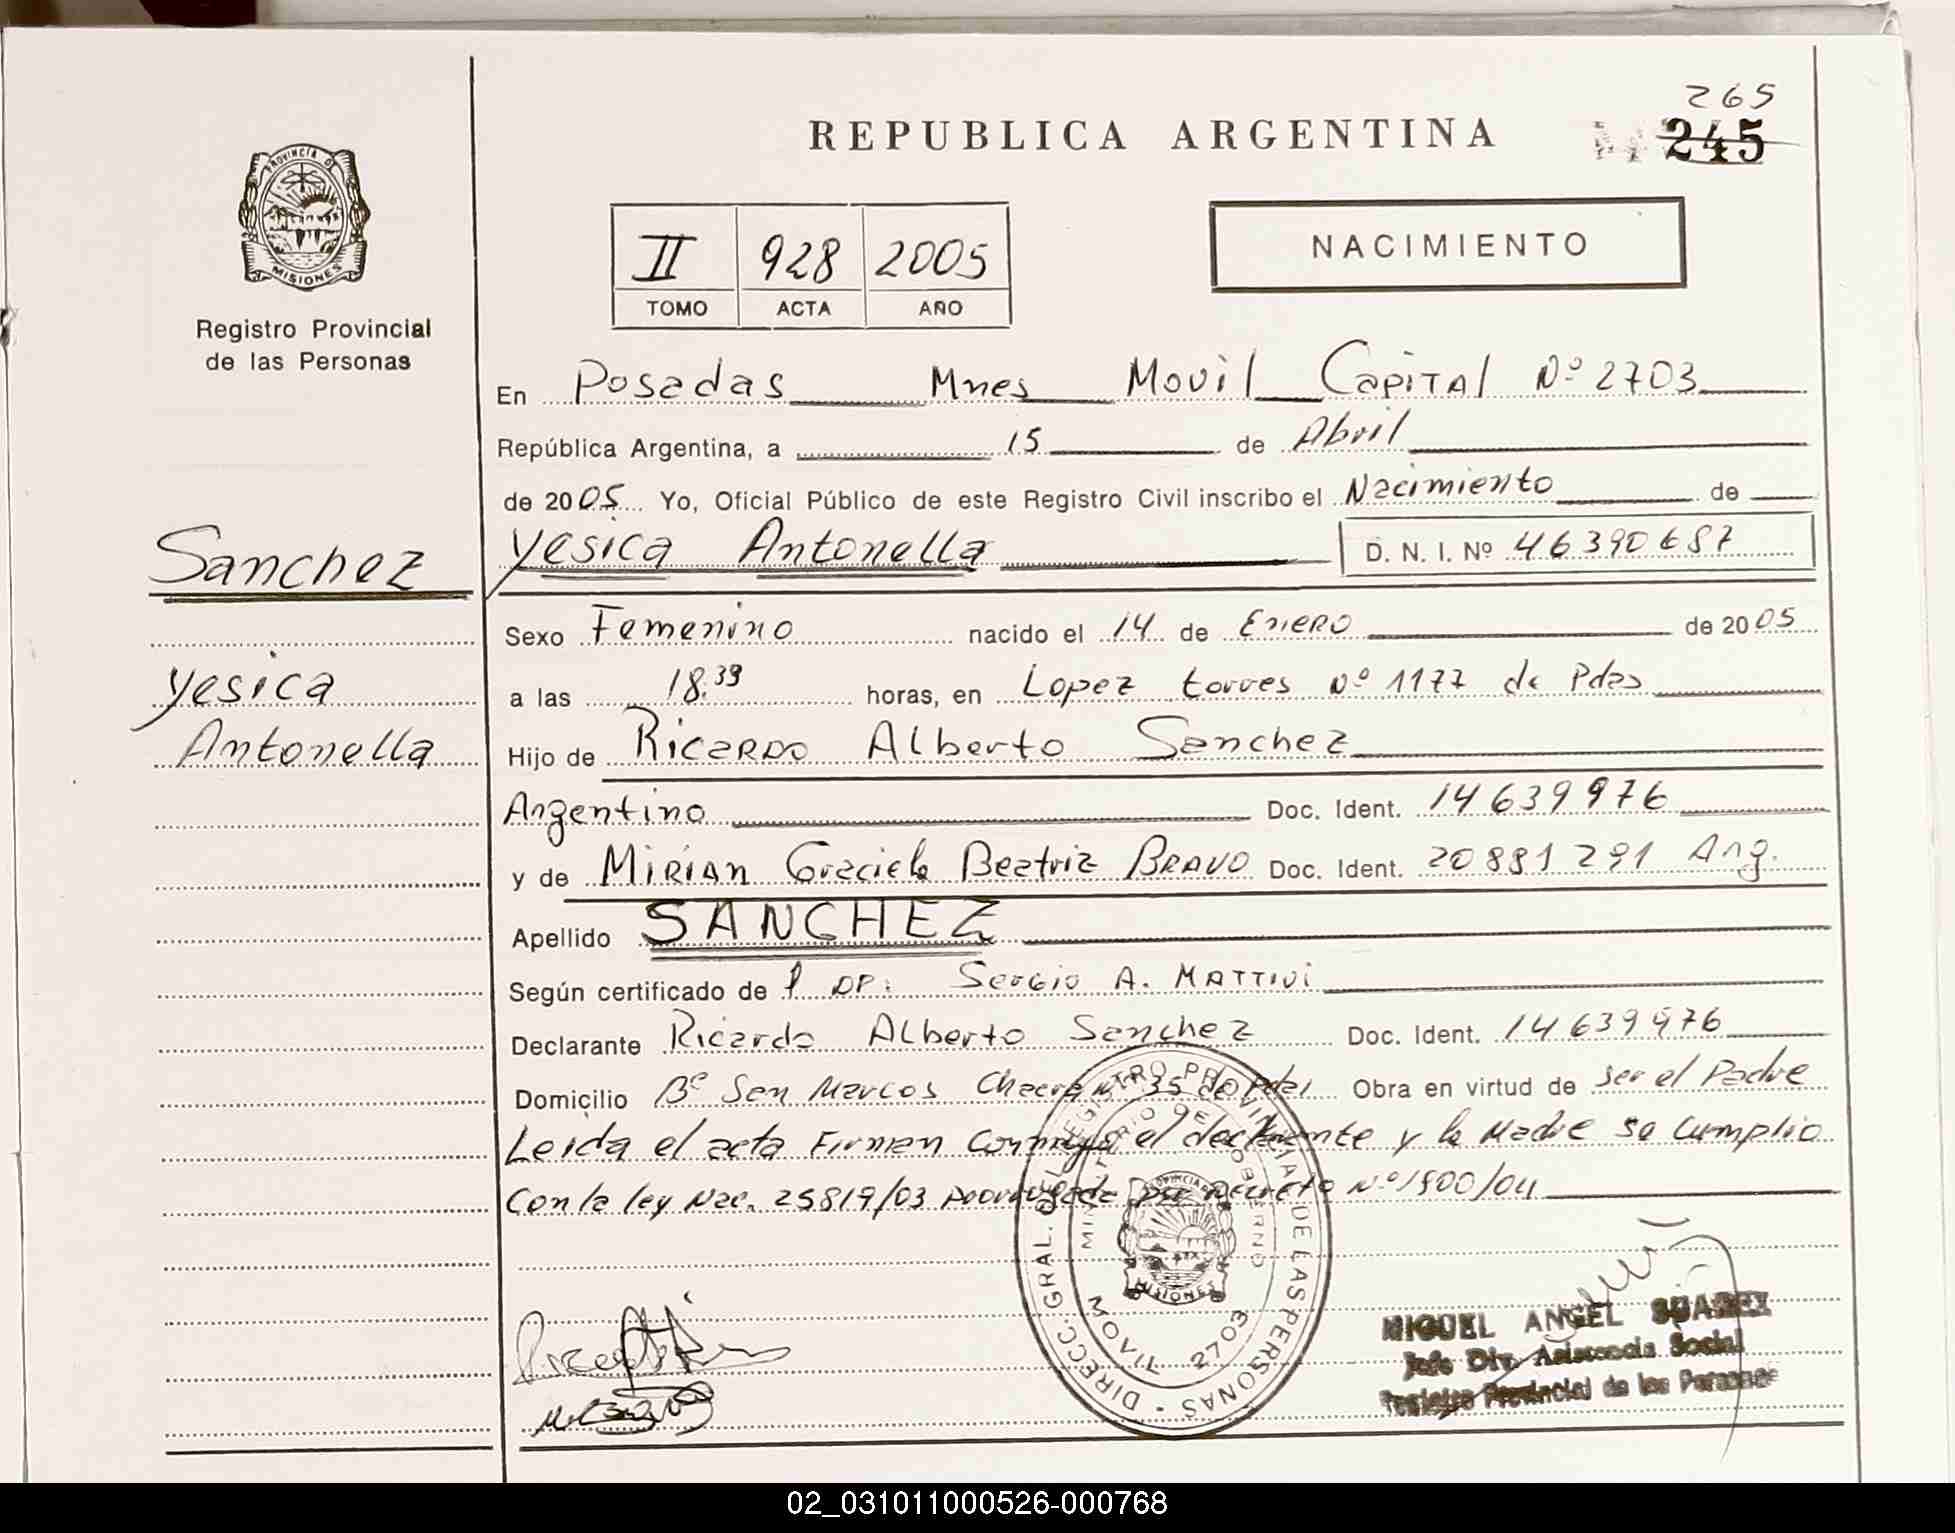 265
REPUBLICA ARGENTINA
245
PROVINCIA DE
MISIONES
Registro Provincial
de las Personas
II 928 2005
TOMO ACTA AÑO
NACIMIENTO
En Posadas Mnes Movil Capital Nº 2703
República Argentina, a 15 de Abril
de 2005 Yo, Oficial Público de este Registro Civil inscribo el Nacimiento de
Sanchez
Yesica Antonella D. N. I. Nº 46390687
Sexo Femenino nacido el 14 de Enero de 2005
Yesica
Antonella
a las 18:39 horas, en Lopez torres Nº 1177 de Pdas
Hijo de Ricardo Alberto Sanchez
Argentino Doc. Ident. 14639976
y de Mirian Graciela Beatriz Bravo Doc. Ident. 20881291 Arg.
Apellido SANCHEZ
Según certificado de DP: Sergio A. Mattivi
Declarante Ricardo Alberto Sanchez Doc. Ident. 14639976
Domicilio Bº San Marcos Chacra Nº 35 de Pdas Obra en virtud de ser el Padre
Leida el acta Firman Conmigo el declarante y la Madre se cumplio
Con la ley Nac. 25819/03 prorrogada por Decreto Nº 1900/04
DIRECC. GRAL. DEL REGISTRO PROVINCIAL DE LAS PERSONAS
MINISTERIO DE GOBIERNO
MISIONES
MOVIL 2703
MIGUEL ANGEL SUAREZ
Jefe Div. Asistencia Social
Registro Provincial de las Personas
02_031011000526-000768